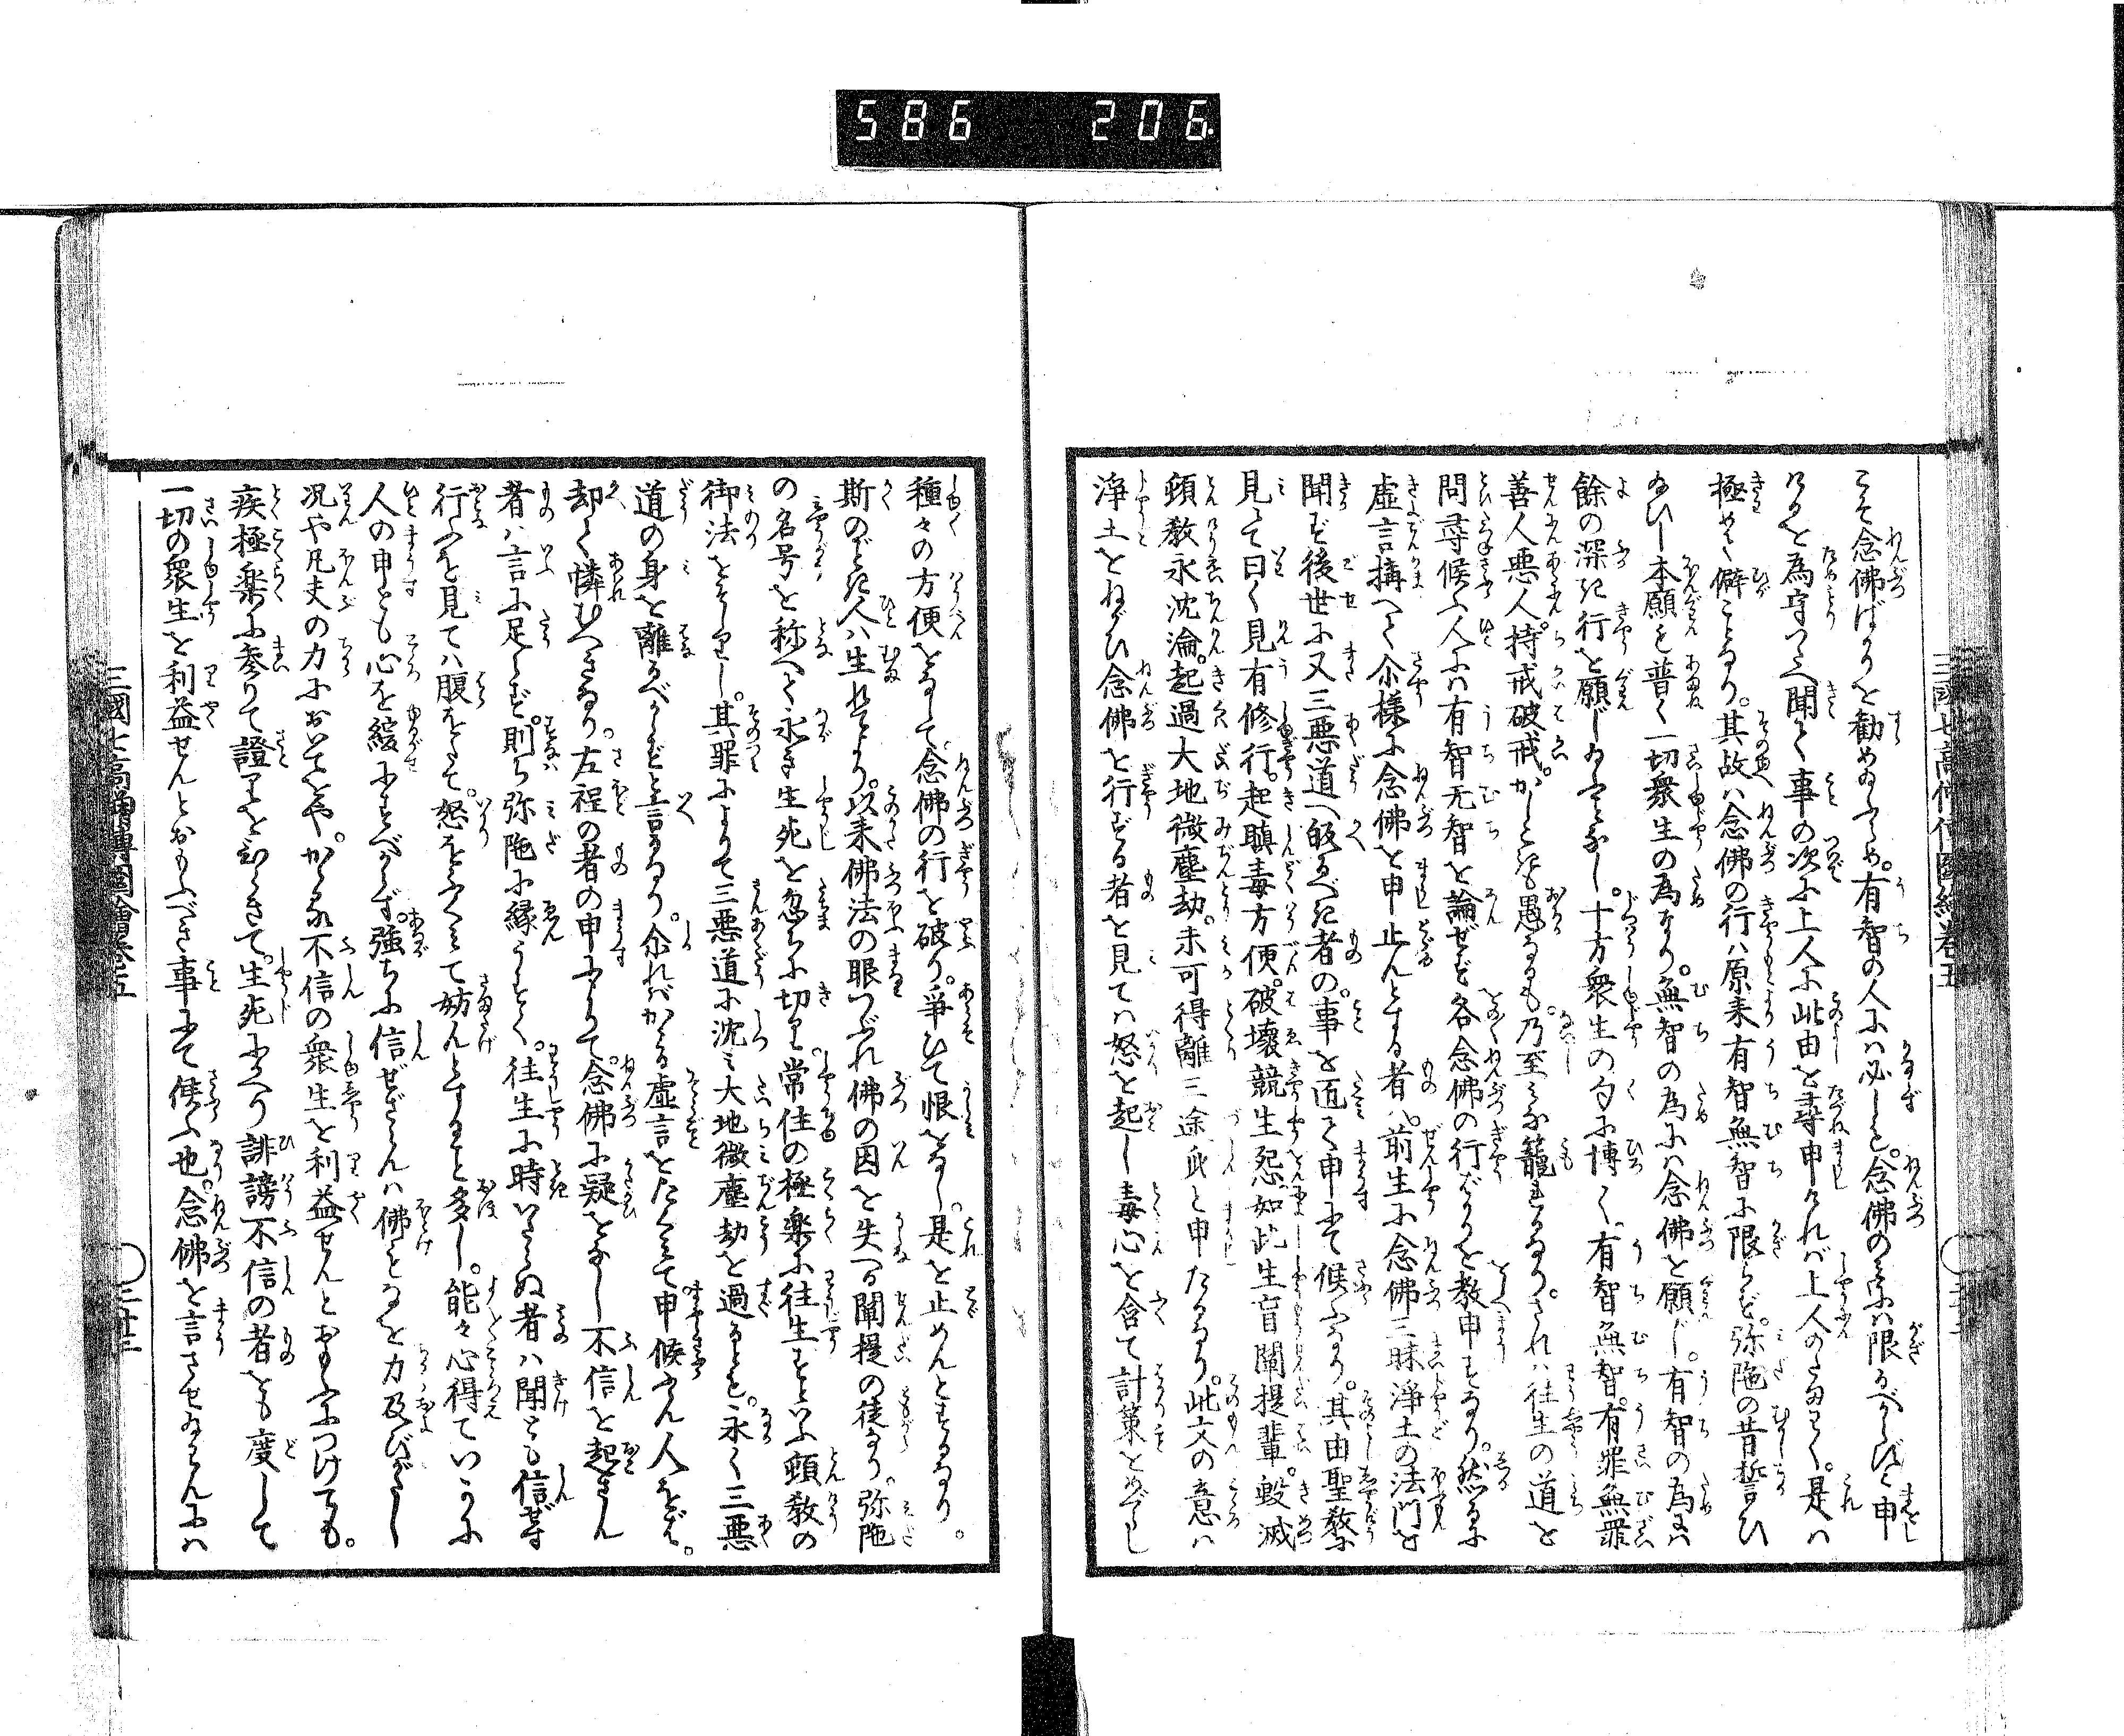 586 206
こそ念佛ばかりを勧め給ふらめ。有智の人には必しも。念佛のみには限るべからずと申
けるを為守つたへ聞て事の次に上人に此由を尋申ければ上人のたまはく。是は
極めて僻ことなり。其故は念佛の行は原来有智無智に限らず。弥陁の昔誓ひ
給ひし本願も普く一切衆生の為なり。無智の為には念佛を願じ。有智の為には
餘の深き行を願じ給ふことなし。十方衆生の句に博く。有智無智。有罪無罪
善人悪人。持戒破戒。かしこきも愚なるも。乃至みな籠るなり。されは往生の道を
問尋候ふ人には有智无智を論ぜず各念佛の行ばかりを教申すなり。然るに
虚言搆へて尒様に念佛を申止んとする者は。前生に念佛三昧浄土の法門を
聞ず後世に又三悪道へ皈るべき者の。事を近て申にて候ふなり。其由聖教に
見えて曰く見有修行。起瞋毒方便。破壊競生怨如此生盲闡提輩。毀滅
頓教永沈淪。起過大地微塵劫。未可得離三途身と申たるなり。此文の意は
浄土をねがひ念佛を行ずる者を見ては怒を起し毒心を含て計策をめぐらし
三國七高僧傳圖繪卷五
種々の方便をなして。念佛の行を破り。爭ひて恨をなし。是を止めんとするなり。
斯のごとき人は生れてより。以来佛法の眼つぶれ佛の因を失へる闡提の徒なり。弥陁
の名号を称へて永き生死を忽ちに切り。常住の極楽に往生すといふ頓教の
御法をそしり。其罪によりて三悪道に沈み大地微塵劫を過るとも。永く三悪
道の身を離るべからずと言るなり。尒ればかゝる虚言をたくみて申候ふらん人をば。
却て憐むべきなり。左程の者の申によりて。念佛に疑をなし不信を起さん
者は言に足らず。則ち弥陁に縁うすく。往生に時いたらぬ者は聞とも信ぜず
行ふを見ては腹をたて。怒をふくみて妨んとすること多し。能々心得ていかに
人の申とも心を緩にすべからず。強ちに信ぜざらんは佛とても力及びがたし
况や凡夫の力においてをや。かゝる不信の衆生を利益せんとおもふにつけても。
疾極楽に参りて證りをひらきて。生死にかへり誹謗不信の者をも度して
一切の衆生を利益せんとおもふべき事にて候ふ也。念佛を言させ給はんには
三國七高僧傳圖繪卷五